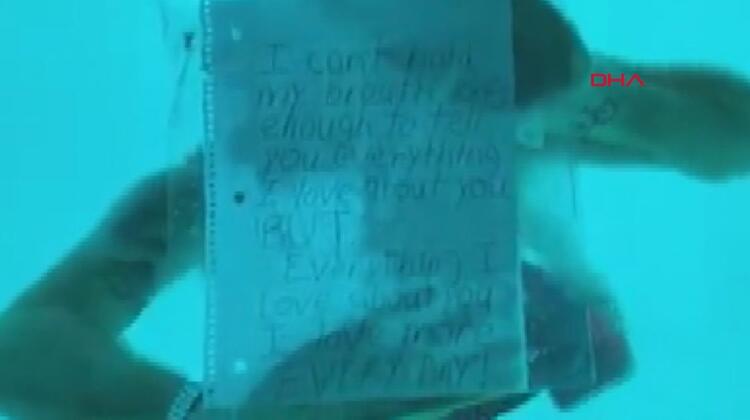 DHA
I can't hold
my breath long
enough to tell
you Everything
I love about you
BUT.
Everything I
Love about you
I love more
EVERY DAY!